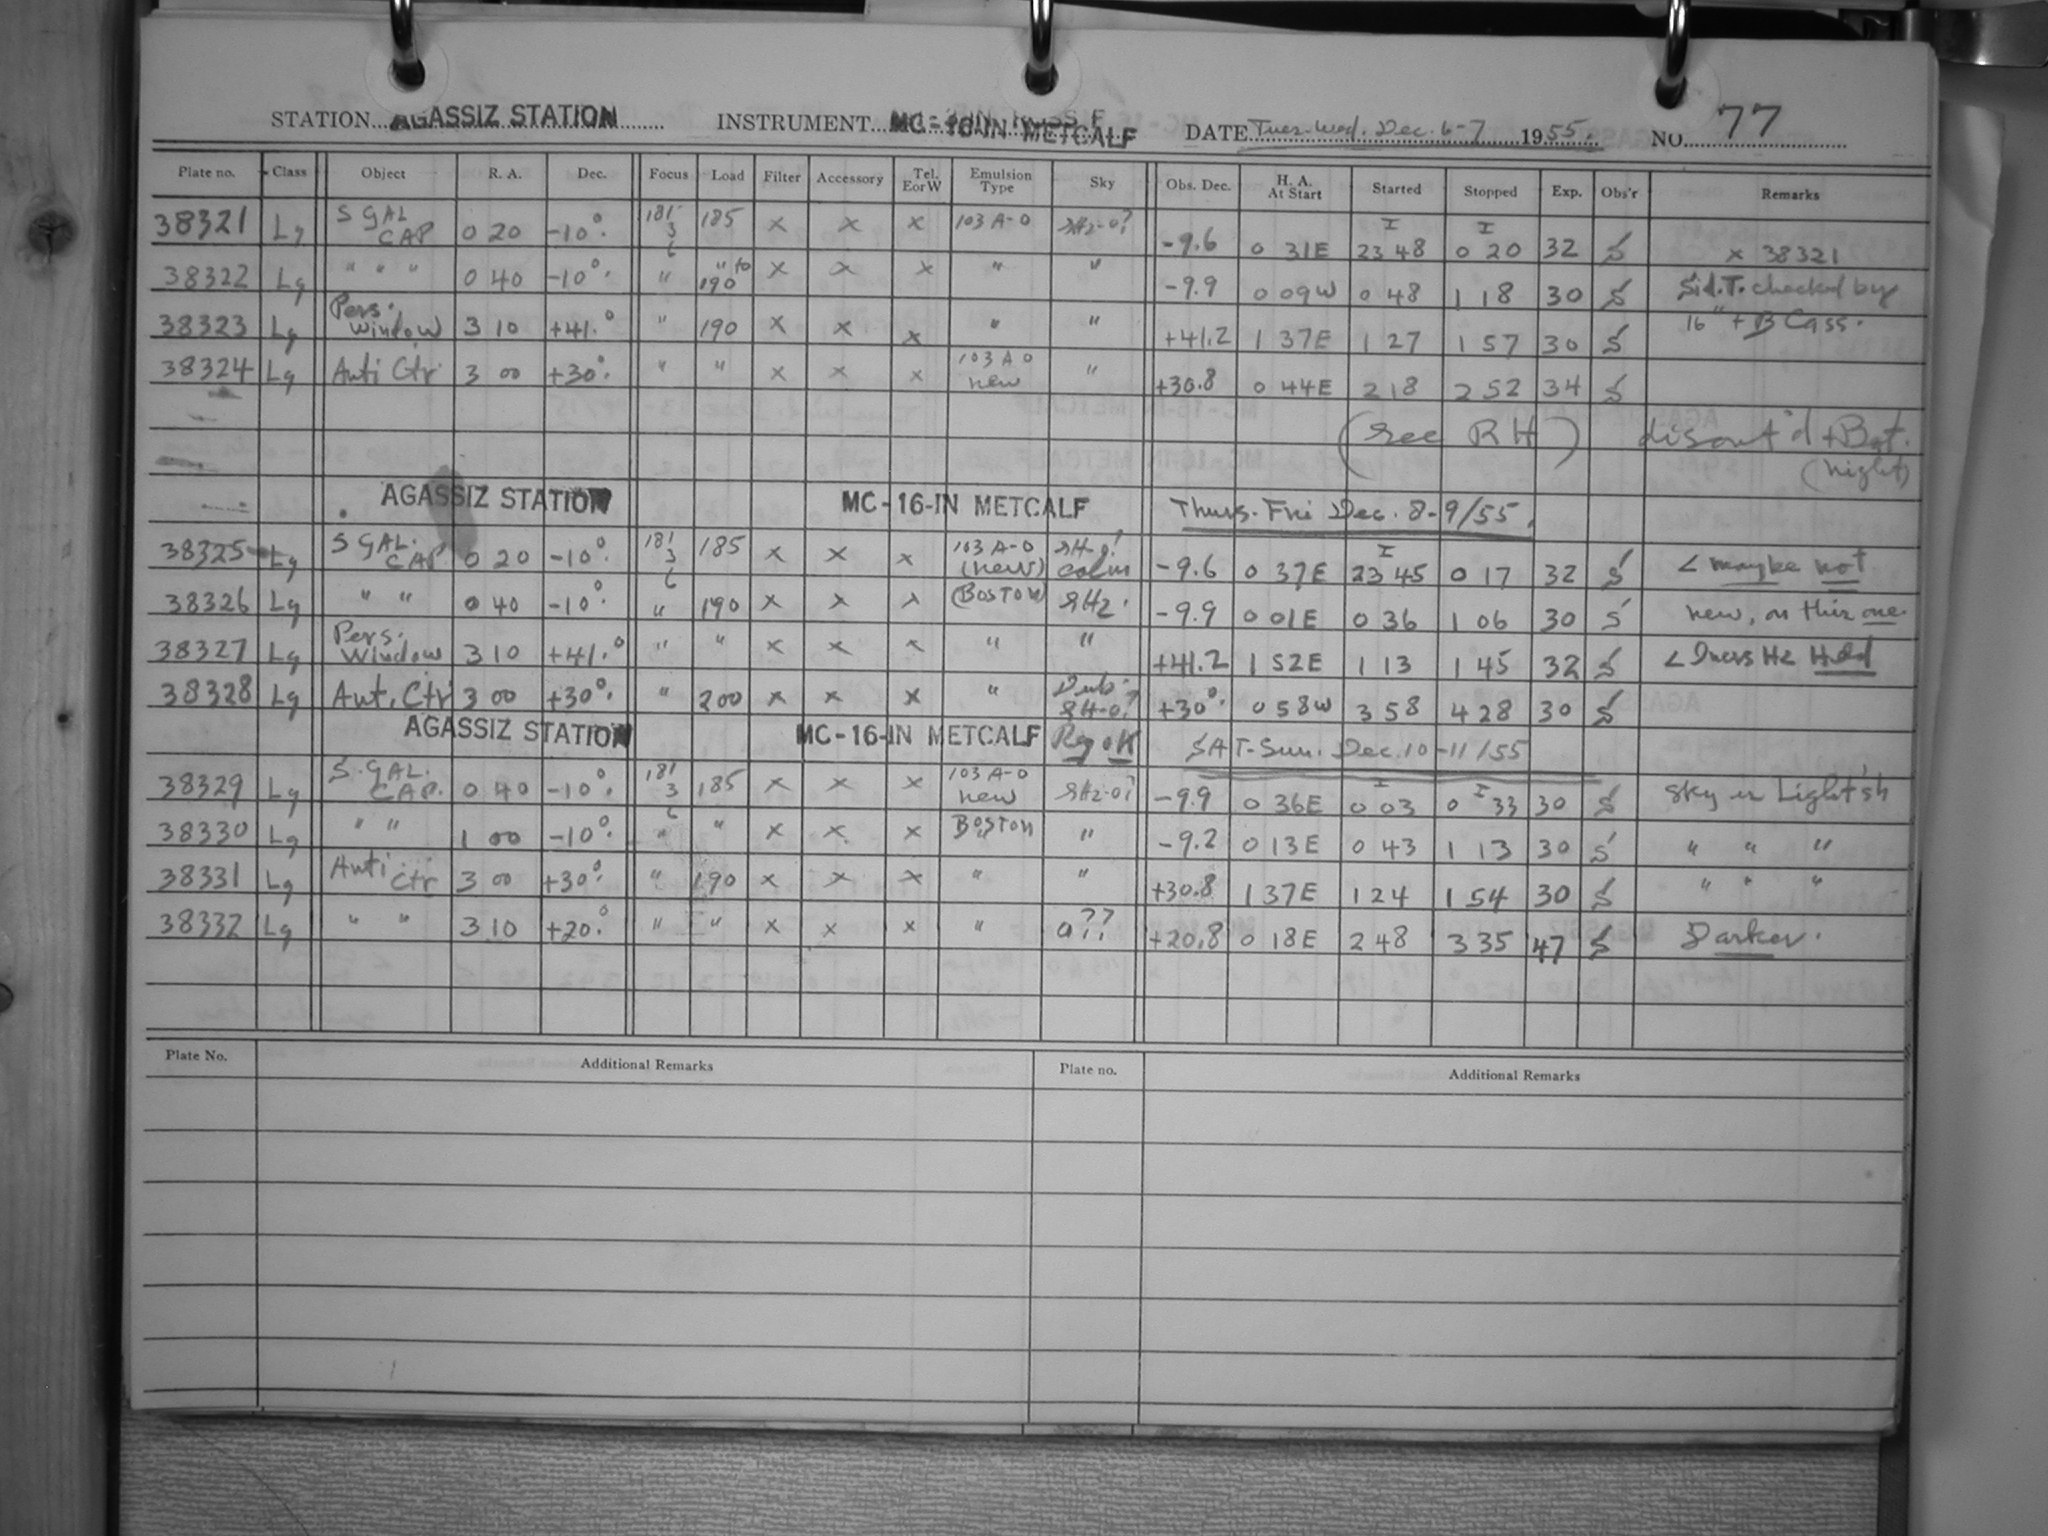 STATION AGASSIZ STATION INSTRUMENT MC-16-IN METCALF DATE Tues.-Wed. Dec. 6-7 1955. NO. 77
Plate no. Class Object R. A. Dec. Focus Load Filter Accessory Tel. EorW Emulsion Type Sky Obs. Dec. H. A. At Start Started Stopped Exp. Obs'r Remarks
38321 Lg S GAL CAP 0 20 -10° 181 3 6 185 x x x 103 A-O SH2-0? -9.6 0 31E I 23 48 I 0 20 32 S x 38321
38322 Lg " " " 0 40 -10° " " to 190 x x x " " -9.9 0 09W 0 48 1 18 30 S Sid. T. checked by
38323 Lg Pers. Window 3 10 +41.° " 190 x x x " " +41.2 1 37E 1 27 1 57 30 S 16" + B Cass.
38324 Lg Anti Ctr 3 00 +30° " " x x x 103 A O new " +30.8 0 44E 2 18 2 52 34 S
(see RH) discont'd + Bat. (night)
AGASSIZ STATION MC-16-IN METCALF Thurs.-Fri Dec. 8-9/55.
38325 Lg S GAL. CAP 0 20 -10° 181 3 6 185 x x x 103 A-O (new) calm -9.6 0 37E I 23 45 0 17 32 S < maybe not
38326 Lg " " 0 40 -10° " 190 x x x (BOSTON SH2. -9.9 0 01E 0 36 1 06 30 S new, on this one.
38327 Lg Pers. Window 3 10 +41.° " " x x x " " +41.2 1 52E 1 13 1 45 32 S <
38328 Lg Ant. Ctr 3 00 +30° " 200 x x x " Dub. SH-0? +30° 0 58W 3 58 4 28 30 S
AGASSIZ STATION MC-16-IN METCALF Reg OK SAT-Sun. Dec. 10-11/55
38329 Lg S. GAL. CAP. 0 40 -10° 181 3 6 185 x x x 103 A-O new SH2-0? -9.9 0 36E I 0 03 I 0 33 30 S Sky is Light'sh
38330 Lg " " 1 00 -10° " " x x x BOSTON " " -9.2 0 13E 0 43 1 13 30 S " " "
38331 Lg Anti Ctr 3 00 +30° " 190 x x x " " +30.8 1 37E 1 24 1 54 30 S " " "
38332 Lg " " 3 10 +20° " " x x x " a?? +20.8 0 18E 2 48 3 35 47 S Darker.
Plate No. Additional Remarks Plate no. Additional Remarks